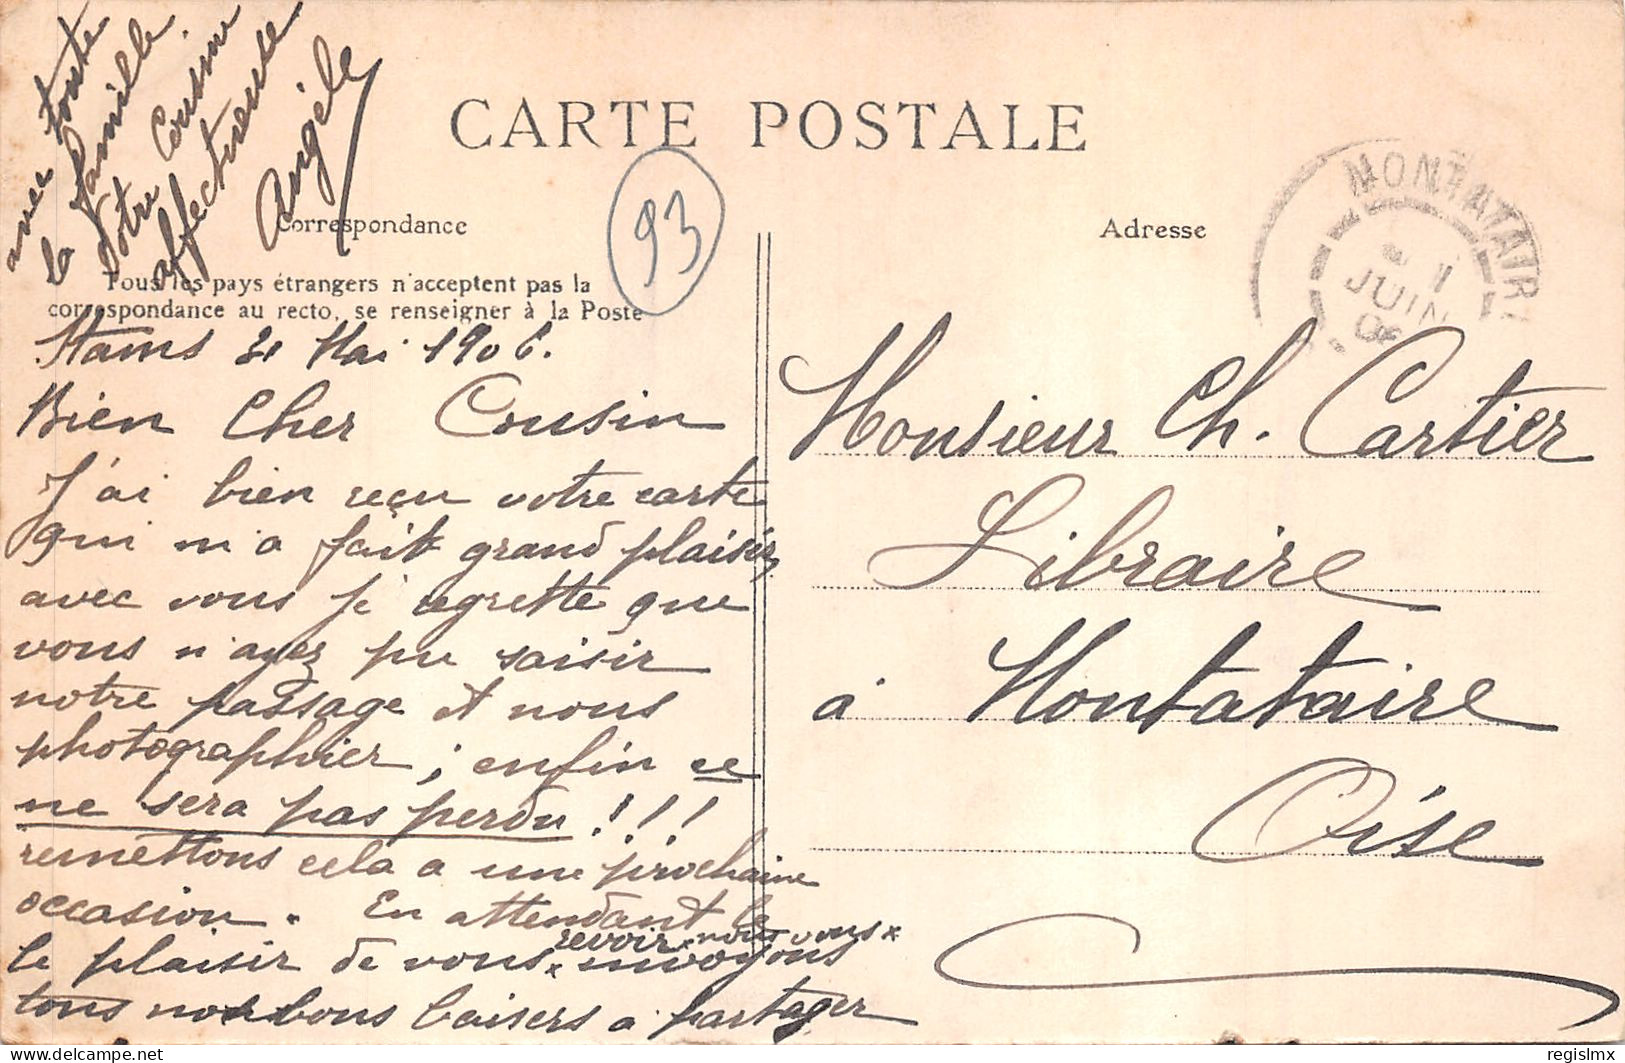 CARTE POSTALE
Correspondance
Adresse
Tous les pays étrangers n'acceptent pas la
correspondance au recto, se renseigner à la Poste
93
MONTATAIRE
JUIN
Stains 31 Mai 1906.
Bien Cher Cousin
J'ai bien reçu votre carte
qui m'a fait grand plaisir
avec vous je regrette que
vous n'ayez pu saisir
notre passage et nous
photographier ; enfin ce
ne sera pas perdu !!!
remettons cela a une prochaine
occasion. En attendant le
le plaisir de vous × revoir × nous vous ×
envoyons
tous nos bons baisers a partager
avec toute
la famille.
Votre Cousine
affectueuse
Angèle
Monsieur Ch. Cartier
Libraire
à Montataire
Oise
regislmx